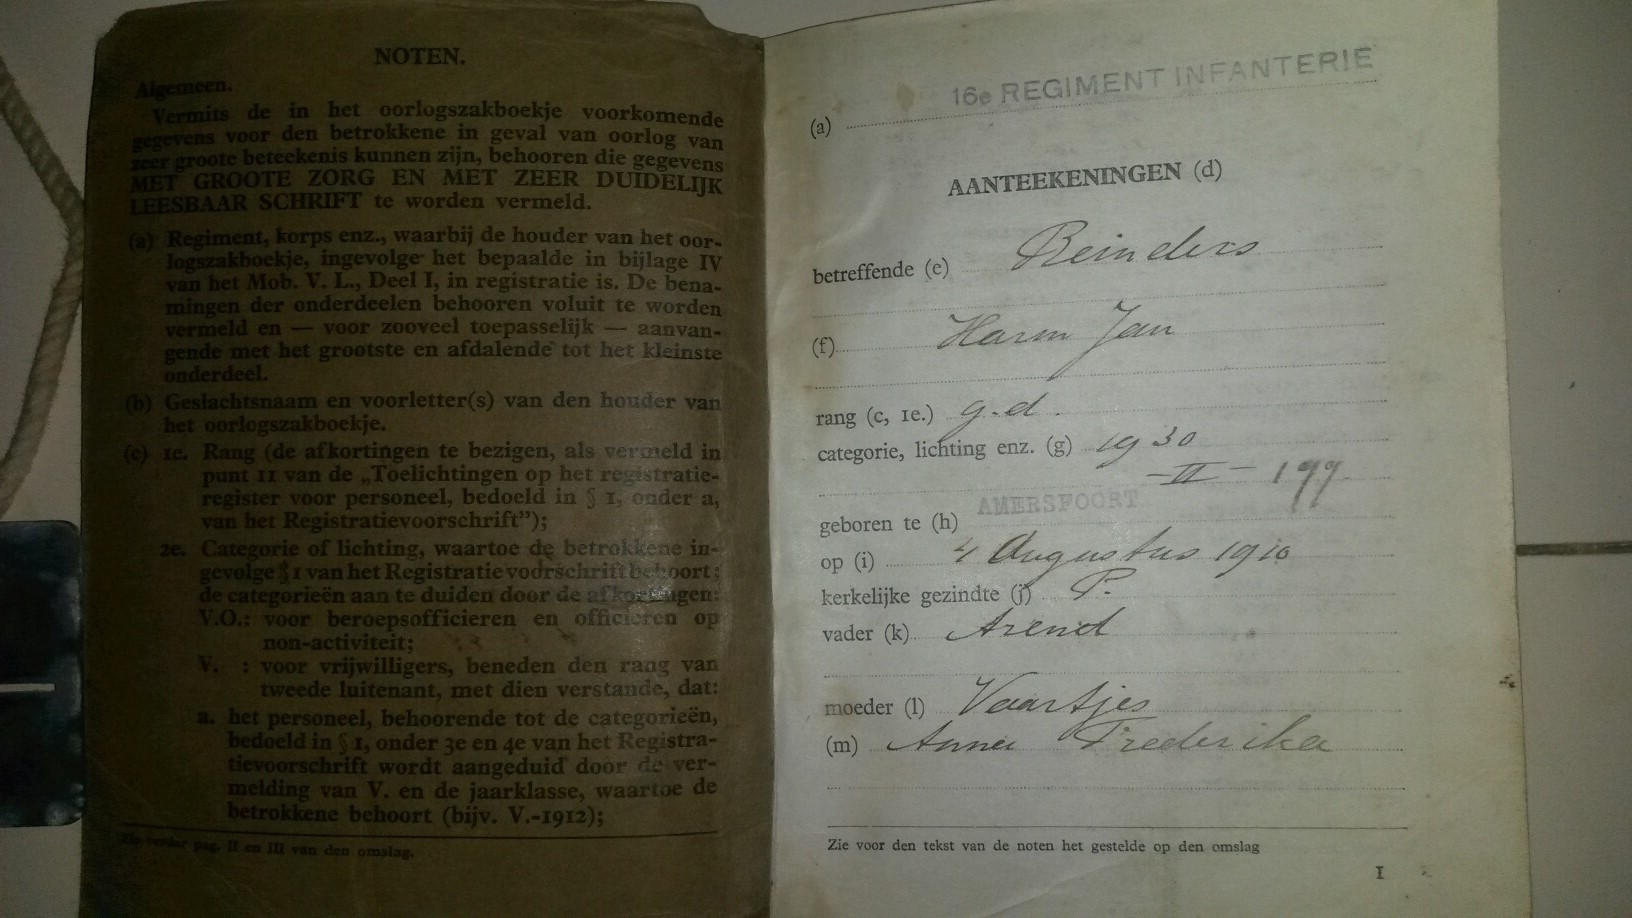 NOTEN.
Algemeen.
Vermits de in het oorlogszakboekje voorkomende
gegevens voor den betrokkene in geval van oorlog van
zeer groote beteekenis kunnen zijn, behooren die gegevens
MET GROOTE ZORG EN MET ZEER DUIDELIJK
LEESBAAR SCHRIFT te worden vermeld.
(a) Regiment, korps enz., waarbij de houder van het oor-
logszakboekje, ingevolge het bepaalde in bijlage IV
van het Mob. V. L., Deel I, in registratie is. De bena-
mingen der onderdeelen behooren voluit te worden
vermeld en — voor zooveel toepasselijk — aanvan-
gende met het grootste en afdalende tot het kleinste
onderdeel.
(b) Geslachtsnaam en voorletter(s) van den houder van
het oorlogszakboekje.
(c) 1e. Rang (de afkortingen te bezigen, als vermeld in
punt 11 van de „Toelichtingen op het registratie-
register voor personeel, bedoeld in § 1, onder a,
van het Registratievoorschrift");
2e. Categorie of lichting, waartoe de betrokkene in-
gevolge § 1 van het Registratievoorschrift behoort;
de categorieën aan te duiden door de afkortingen:
V.O.: voor beroepsofficieren en officieren op
non-activiteit;
V. : voor vrijwilligers, beneden den rang van
tweede luitenant, met dien verstande, dat:
a. het personeel, behoorende tot de categorieën,
bedoeld in § 1, onder 3e en 4e van het Registra-
tievoorschrift wordt aangeduid door de ver-
melding van V. en de jaarklasse, waartoe de
betrokkene behoort (bijv. V.-1912);
Zie verder pag. II en III van den omslag.
16e REGIMENT INFANTERIE
(a)
AANTEEKENINGEN (d)
betreffende (e) Reinders
(f) Harm Jan
rang (c, 1e.) g.d.
categorie, lichting enz. (g) 1930
-II- 199
geboren te (h) AMERSFOORT
op (i) 4 Augustus 1910
kerkelijke gezindte (j) P.
vader (k) Arend
moeder (l) Vaartjes
(m) Anna Frederika
Zie voor den tekst van de noten het gestelde op den omslag
I